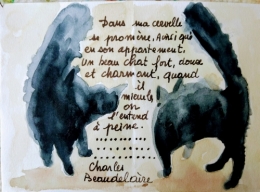 Dans ma cervelle
se promène. Ainsi qu'
en son appartement.
Un beau chat fort, doux
et charmant, quand
il
miaule
on
l'entend
à peine.
. . . . . . . . . .
. . . . . . . . . .
. . . . . . . . . .
Charles
Beaudelaire